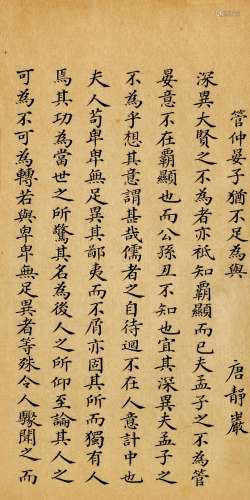 管仲晏子猶不足為與
唐靜巖
深異大賢之不為者亦祇知霸顯而已夫孟子之不為管
晏意不在霸顯也而公孫丑不知也宜其深異夫孟子之
不為乎想其意謂甚哉儒者之自待迥不在人意計中也
夫人苟卑卑無足異其鄙夷而不屑亦固其所而獨有人
焉其功為當世之所驚其名為後人之所仰至論其人之
可為不可為轉若與卑卑無足異者等殊令人驟聞之而